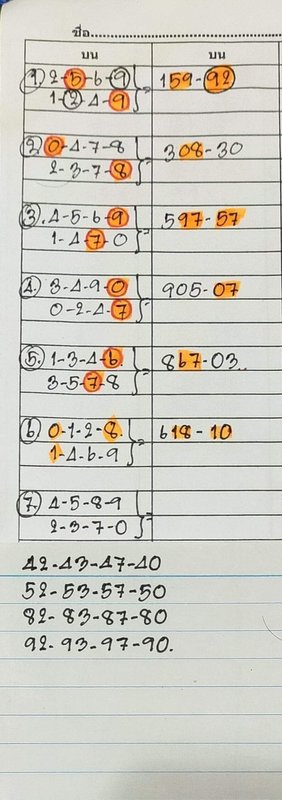 ชื่อ
บน บน
1. 2-5-6-9 } = 159-92
1-2-4-9
2. 0-4-7-8 } = 308-30
2-3-7-8
3. 4-5-6-9 } = 597-57
1-4-7-0
4. 3-4-9-0 } = 905-07
0-2-4-7
5. 1-3-4-6 } = 867-03..
3-5-7-8
6. 0-1-2-8 } = 618-10
1-4-6-9
7. 4-5-8-9 } =
2-3-7-0
42-43-47-40
52-53-57-50
82-83-87-80
92-93-97-90.